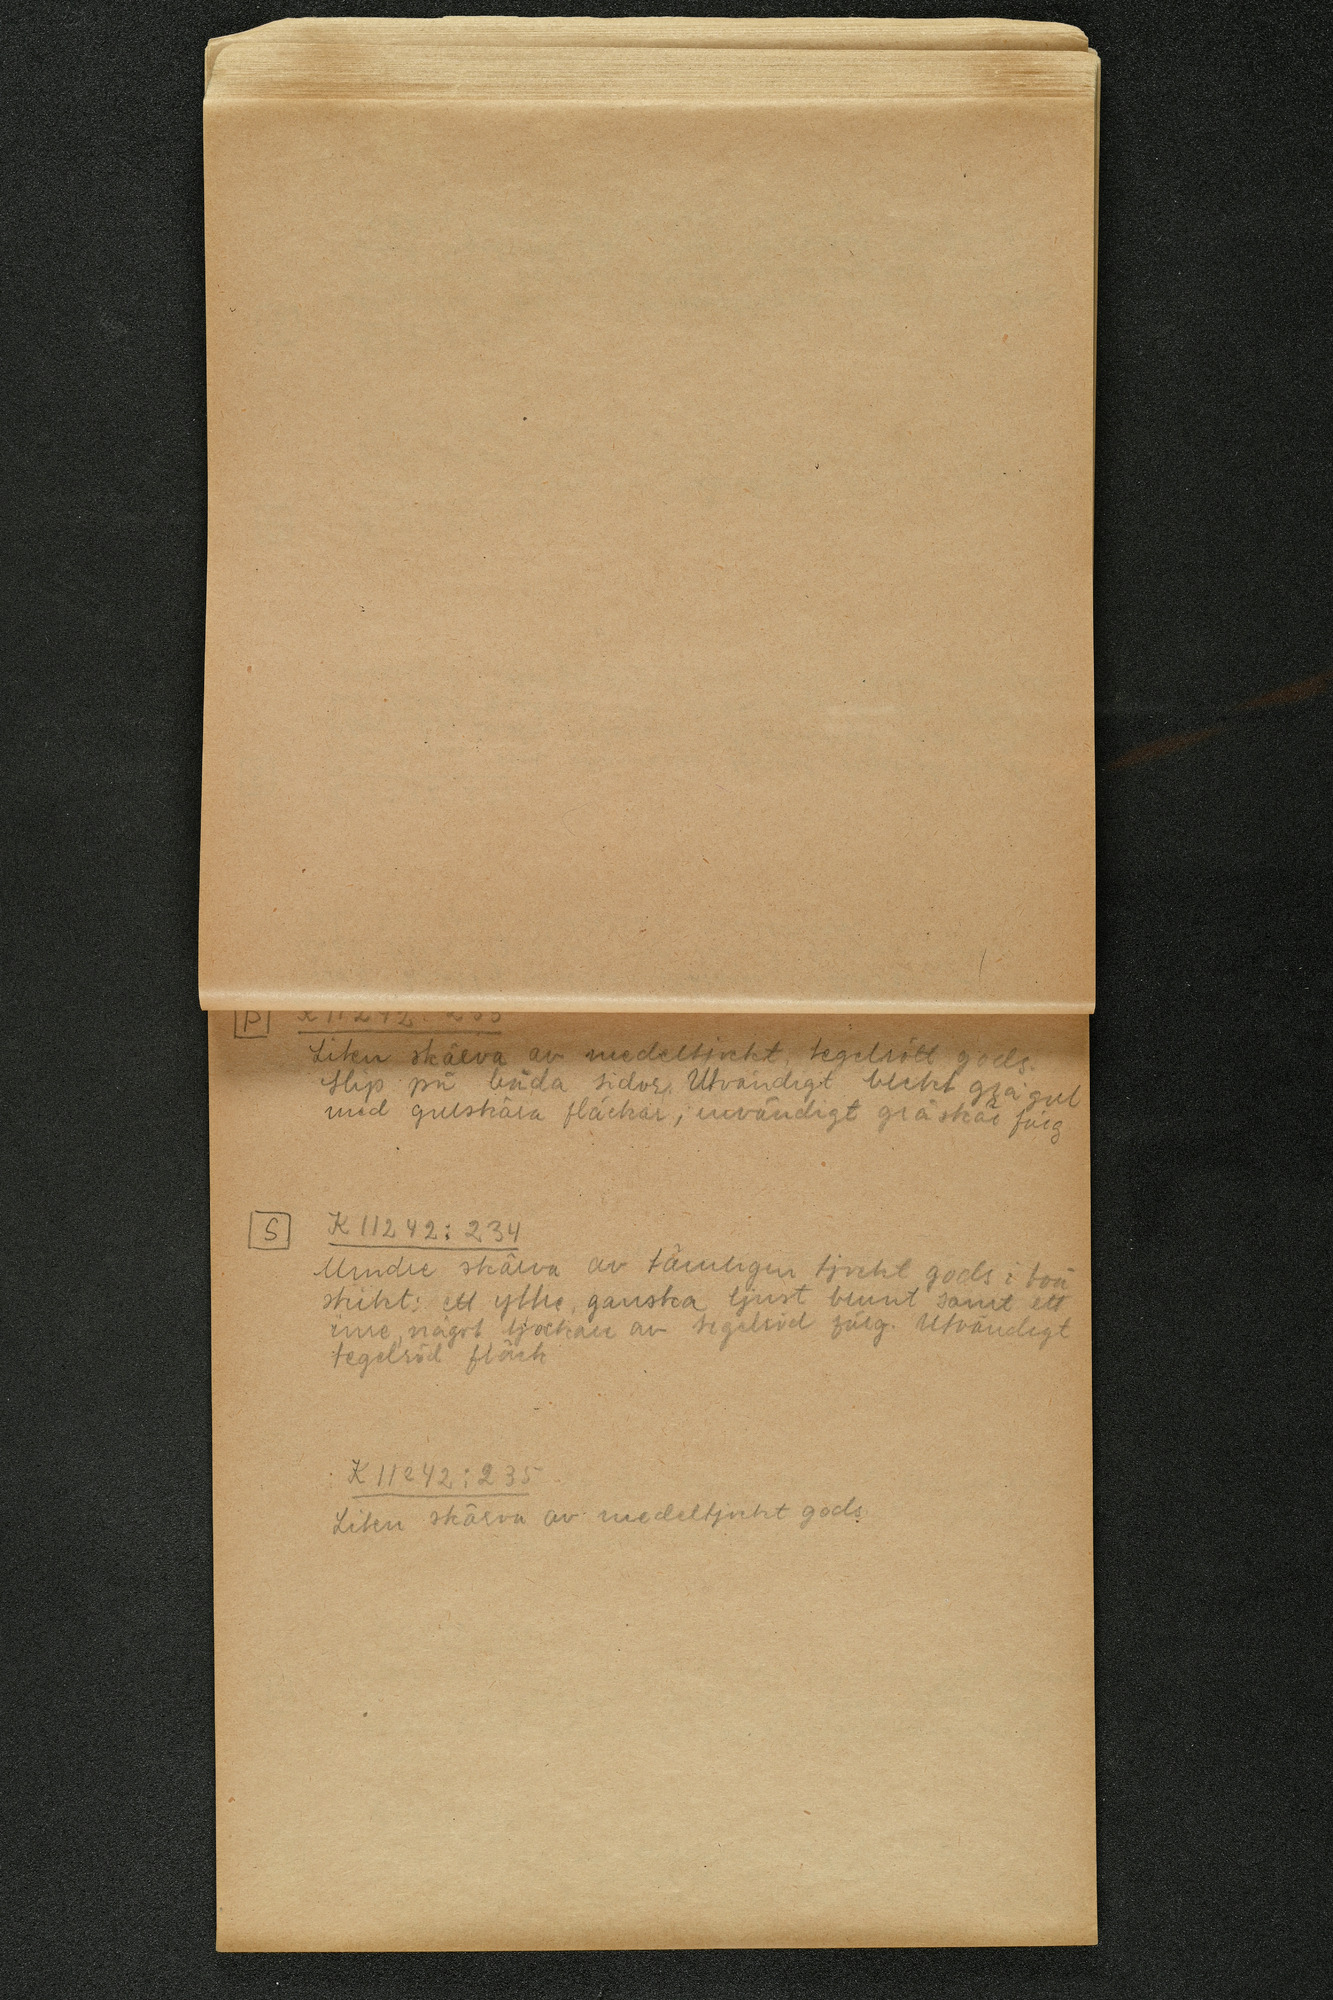 B K 11242:233
Liten skärva av medeltjockt, tegelrött gods.
Slip på båda sidor. Utvändigt blekt grågul
med gulskära fläckar, invändigt gråskär färg
S K 11242:234
Mindre skärva av tämligen tjockt gods i två
skikt: ett yttre, ganska ljust brunt samt ett
inre, något tjockare av tegelröd färg. Utvändigt
tegelröd fläck
K 11242:235
Liten skärva av medeltjockt gods